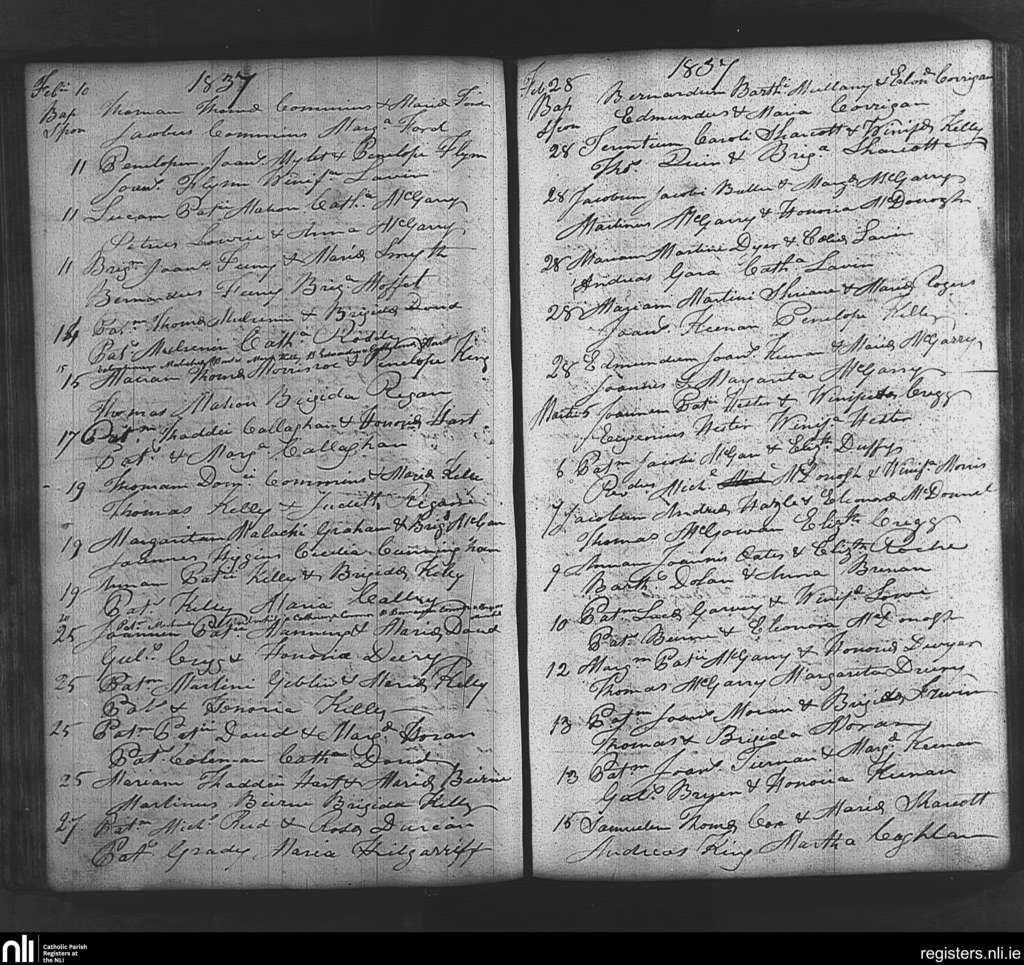 Feb. 10 1837
Bap Thomam Thomæ Commins & Mariæ Ford
Spon Jacobus Commins Marga Ford
11 Penelopen Joans Mylet & Penelope Flynn
Joans Flynn Winifm Lavin
11 Lucam Patii Mahon Catha McGarry
Petrus Lowrie & Anna McGarry
11 Brigm Joans Feeny & Mariæ Smyth
Bernardus Feeny Briga Moffet
14 Patm Thomæ Mulrenin & Brigidæ David
Pats Mulrenin Catha Roddy
15
15 Mariam Thomæ Morrisroe & Penelope King
Thomas Mahon Brigida Regan
17 Patm Thaddei Callaghan & Honoriæ Hart
Pats & Marga Callaghan
19 Thomam Domii Commins & Mariæ Kelly
Thomas Kelly & Judith Regan
19 Margaritam Malachi Graham & Brigæ McGan
Joannes Higgins Cecilia Cunningham
19 Annam Patii Kelly & Brigidæ Kelly
Pats Kelly Maria Callery
20
25 Joannem Patii Manning & Mariæ David
Guls Cregg & Honoria Deery
25 Patm Martini Giblin & Mariæ Kelly
Pats & Honoria Kelly
25 Patm Patii David & Margæ Horan
Pats Coleman Catha David
25 Mariam Thaddei Hart & Mariæ Beirne
Martinus Beirne Brigida Kelly
27 Patm Michs Reid & Rosæ Durcan
Pats Grady Maria Kilgarriff
1837
Feb. 28
Bap Bernardum Barthi Mullany & Elonæ Corrigan
Spon Edmundus & Maria Corrigan
28 Terentium Caroli Sharcott & Winifæ Kelly
Ths Quin & Briga Sharcott
28 Jacobum Jacobi Butler & Margæ McGarry
Martinus McGarry & Honoria McDonogh
28 Mariam Martini Dyer & Lavin
Andreas Gara Catha Lavin
28 Mariam Martini & Mariæ Rogers
Joans Keenan Penelope Kelly
28 Edmundum Joans Keenan & Mariæ McGarry
Joannis & Margarita McGarry
Martii 5 Joannem Patii Hester & Winifredæ Cregg
Eugenius Hester Winifa Hester
6 Patm Jacobi McGan & Elizth Duffy
Revdus Michl McDonogh & Winifa Morris
7 Jacobum Andreæ Hazle & Elionoræ McDonnel
Thomas McGowan Elizth Cregg
9 Annam Joannis Oates & Elizth Roche
Barths Dolan & Anna Brenan
10 Patm Lucæ Garvey & Winifæ Lowe
Pats Beirne & Eleonora McDonogh
12 Margm Patii McGarry & Honoriæ Dwyer
Thomas McGarry Margarita Drury
13 Patm Joans Moran & Brigidæ Irwin
Thomas & Brigida Moran
13 Patm Joans Tiernan & Margæ Keenan
Guls Bryen & Honoria Keenan
15 Samuelem Thomæ Cox & Mariæ Sharcott
Andreas King Martha Coghlan
nli Catholic Parish
Registers at
the NLI
registers.nli.ie